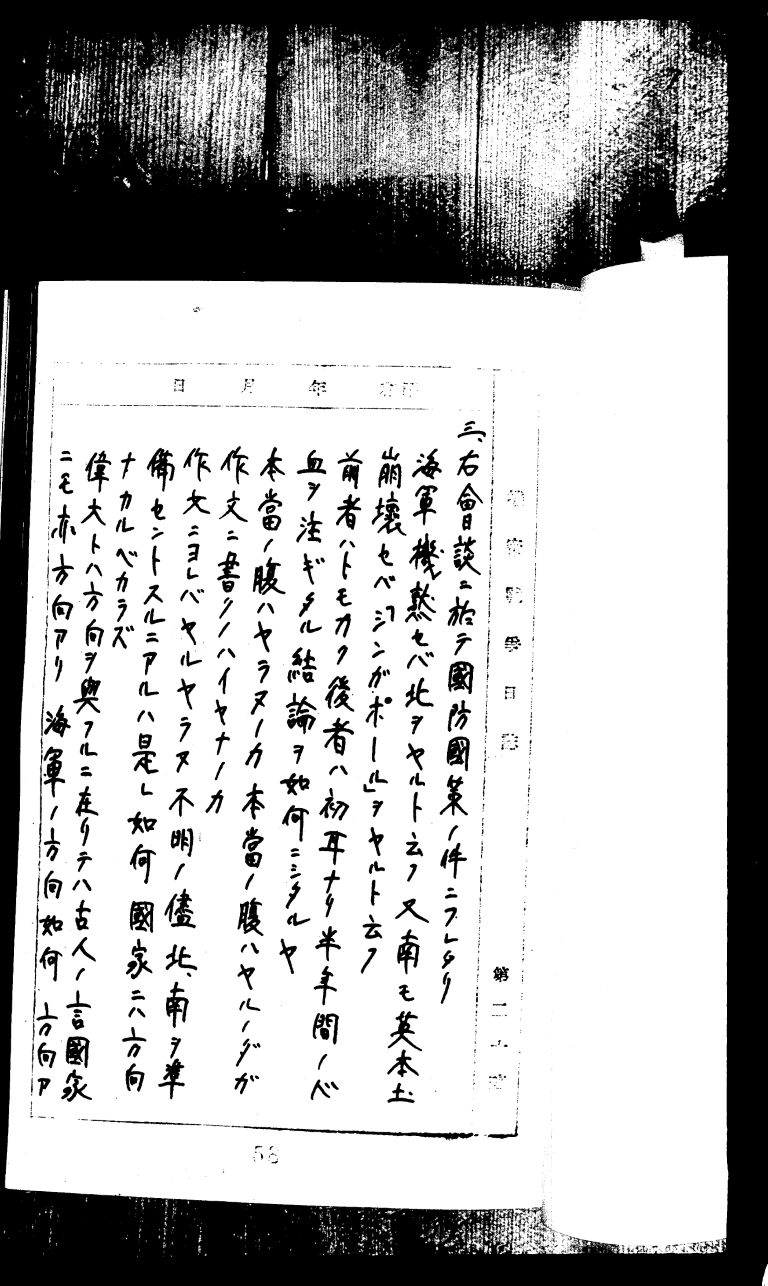 機密戰爭日誌
第二
年 月 日
三、右會談ニ於テ國防國策ノ件ニフレタリ
海軍機熟セバ北ヲヤルト云フ又南モ英本土
崩壞セバ「シンガポール」ヲヤルト云フ
前者ハトモカク後者ハ初耳ナリ半年間ノ心
血ヲ注ギタル結論ヲ如何ニミタルヤ
本當ノ腹ハヤラヌノカ本當ノ腹ハヤルノダガ
作文ニ書クノハイヤナノカ
作文ニヨレバヤルヤラヌ不明ノ儘北、南ヲ準
備セントスルニアルハ是レ如何國家ニハ方向
ナカルベカラズ
偉大トハ方向ヲ與フルニ在リテハ古人ノ言國家
ニモ亦方向アリ 海軍ノ方向如何 方向ア
58